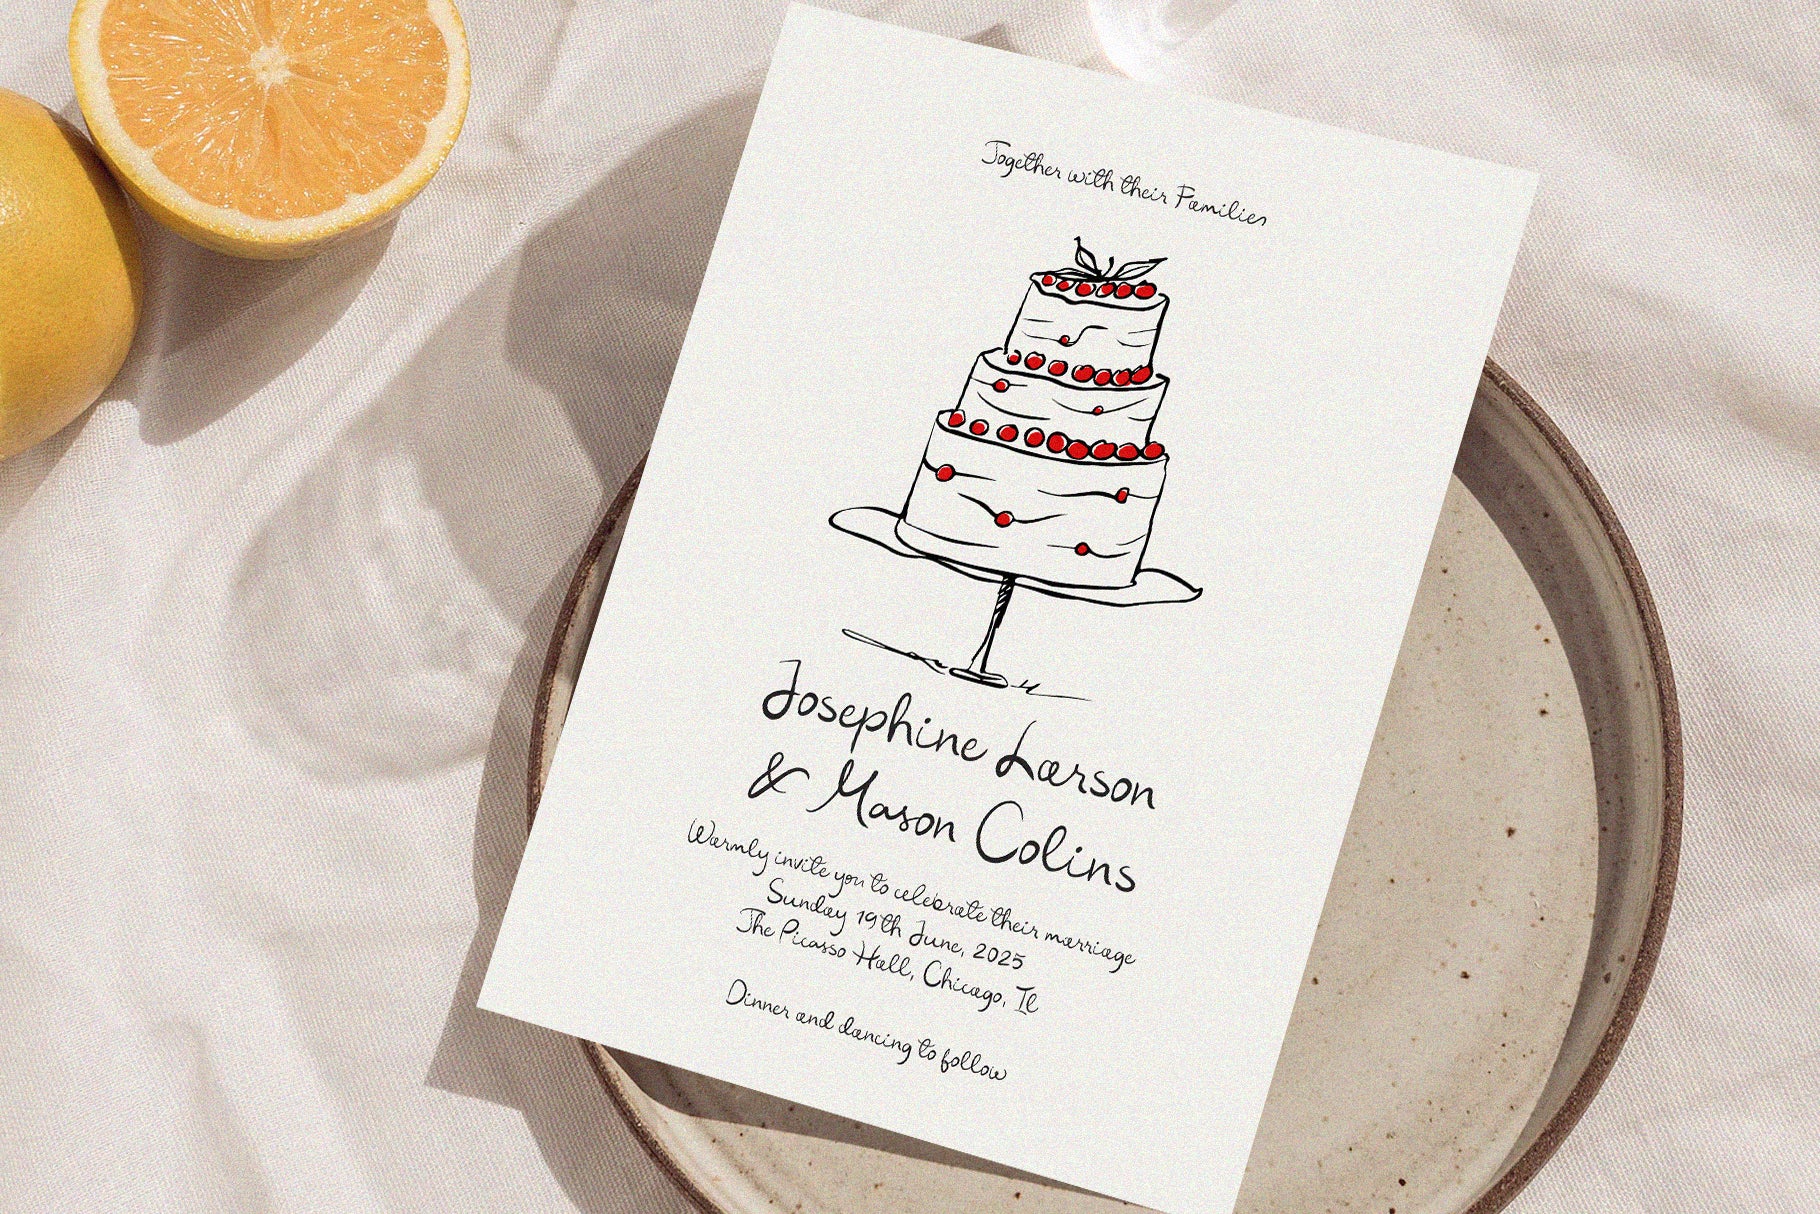 Together with their Families
Josephine Larson
& Mason Colins
Warmly invite you to celebrate their marriage
Sunday 19th June, 2025
The Picasso Hall, Chicago, Il
Dinner and dancing to follow